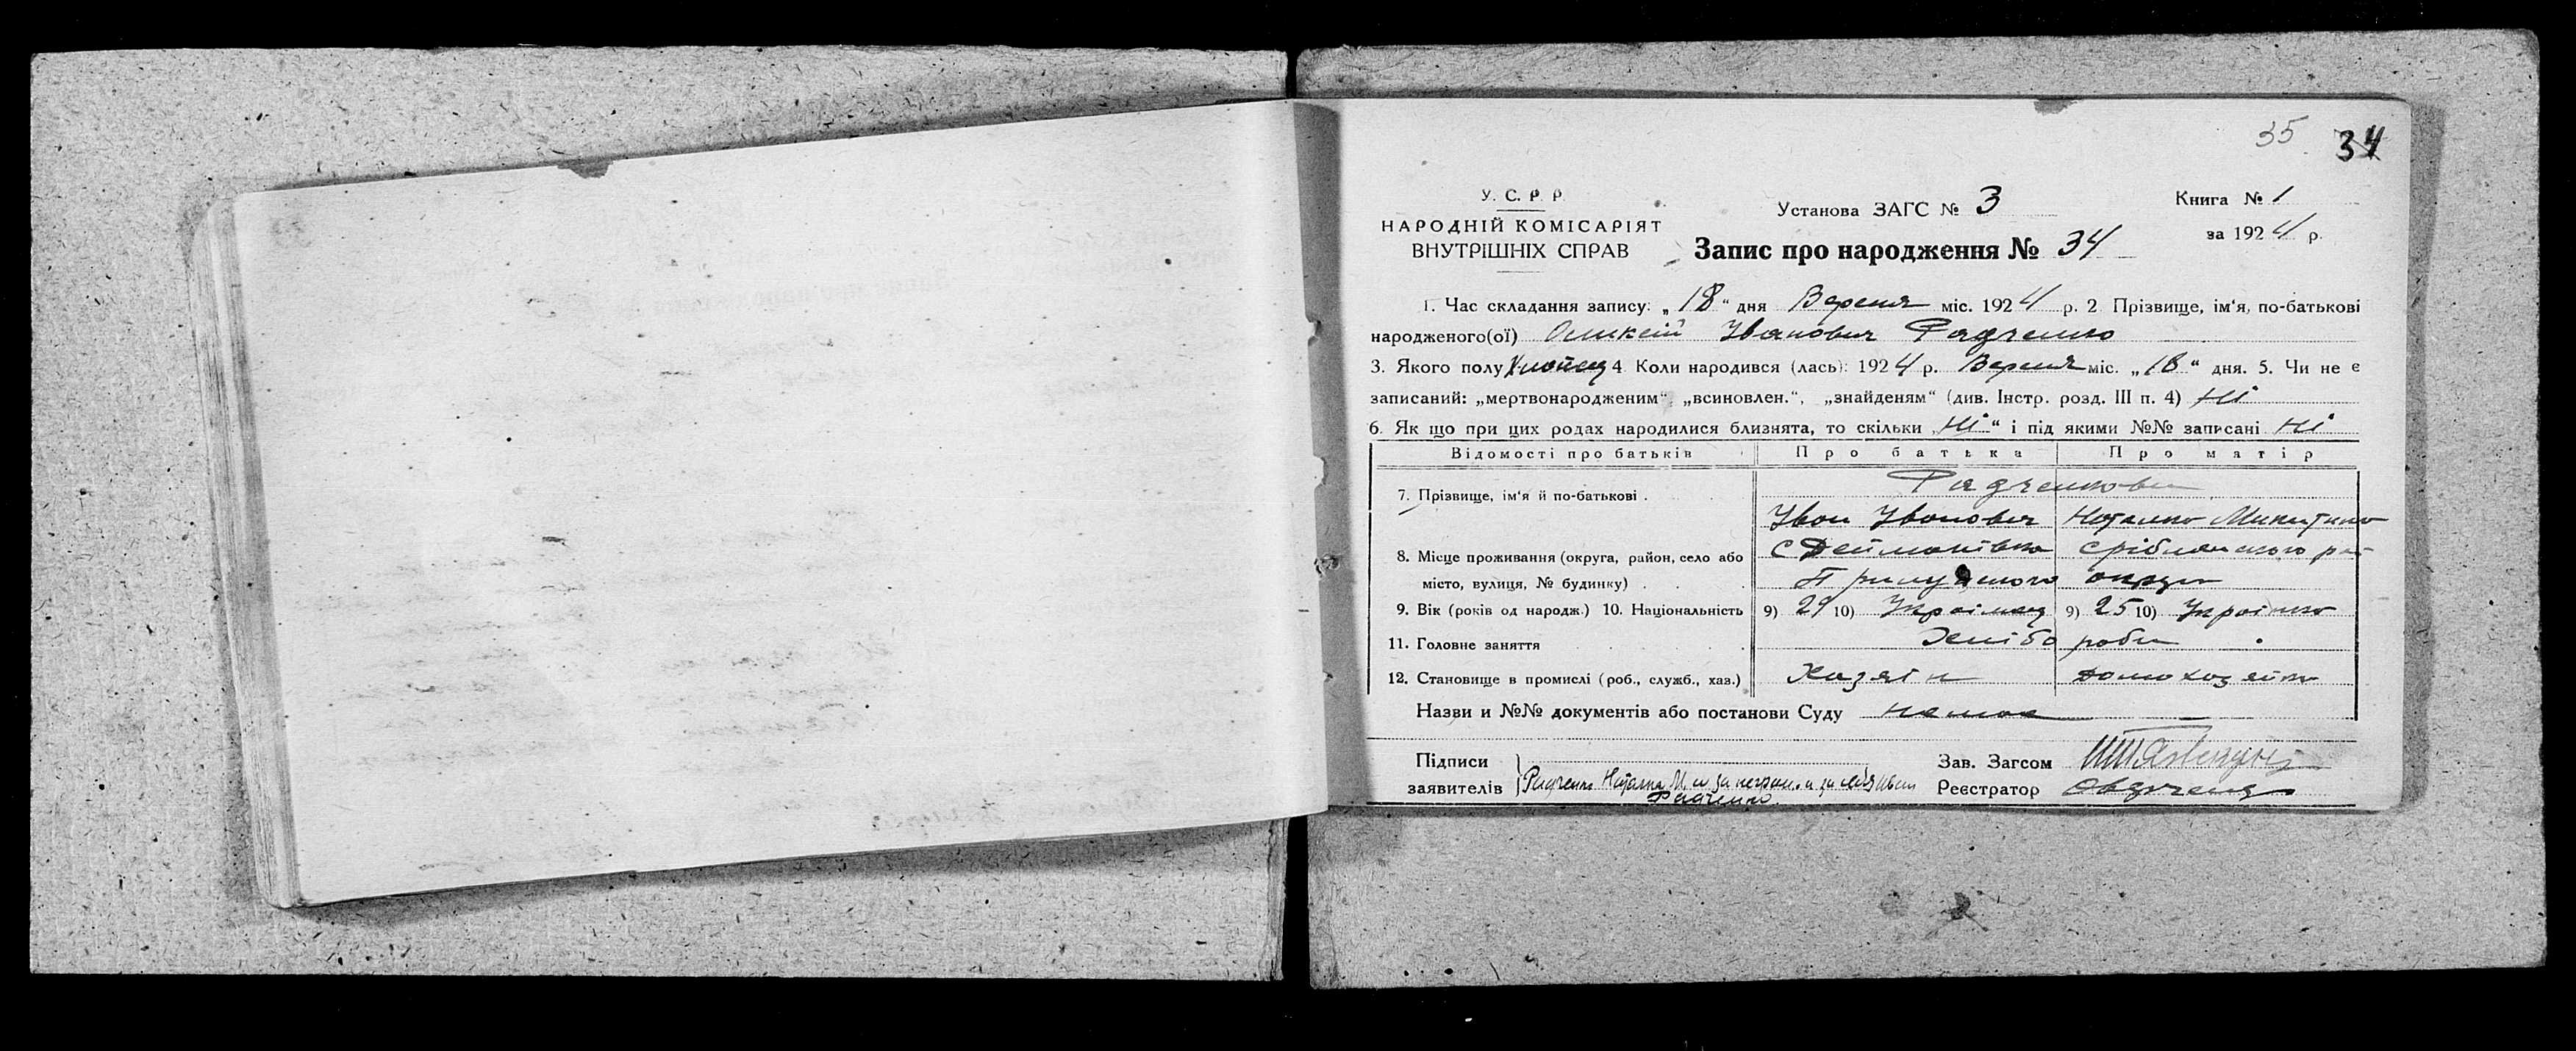 35 34
У. С. Р. Р.
НАРОДНІЙ КОМІСАРІЯТ
ВНУТРІШНІХ СПРАВ
Установа ЗАГС № 3
Книга № 1
за 1924 р.
Запис про народження № 34
1. Час складання запису: „18“ дня Вересня міс. 1924 р. 2 Прізвище, ім‘я, по-батькові
народженого(ої) Олексій Іванович Радченко
3. Якого полу Хлопець 4. Коли народився (лась): 1924 р. Вересня міс. „18“ дня. 5. Чи не є
записаний: „мертвонародженим“, „всиновлен.“, „знайденям“ (див. Інстр. розд. III п. 4) Ні
6. Як що при цих родах народилися близнята, то скільки „Ні“ і під якими №№ записані Ні
Відомості про батьків Про батька Про матір
7. Прізвище, ім‘я й по-батькові Радченкови
Іван Іванович Наталка Микитина
8. Місце проживання (округа, район, село або с Дейманівка Срібнянського рай
місто, вулиця, № будинку) Прилуцького округи
9. Вік (років од народж.) 10. Національність 9) 29 10) Українець 9) 25 10) Українка
11. Головне заняття Хліборобы
12. Становище в промислі (роб., служб., хаз.) Хазяін домохазяйка
Назви и №№ документів або постанови Суду немае
Підписи
заявителів Радченко Наталка М. а за неграм. и за себя Иван
Радченко
Зав. Загсом
Реєстратор